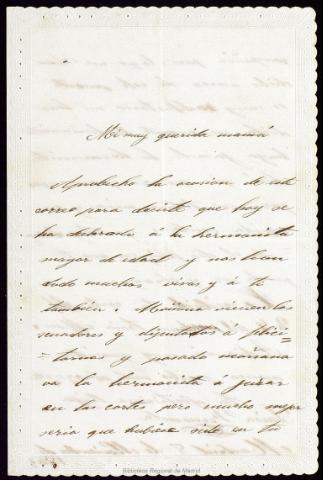 Mi muy querida mamá
Aprobecho la ocasion de este
correo para decirte que hoy se
ha declarado á la hermanita
mayor de edad y nos hicon
endo muchos vivas y á ti
tambien. Mañana vienen los
senadores y diputados á filici=
tarnos y pasado mañana
va la hermanita á jurar
en las cortes pero mucho mejor
seria que hubiera sido en tu
Biblioteca Regional de Madrid